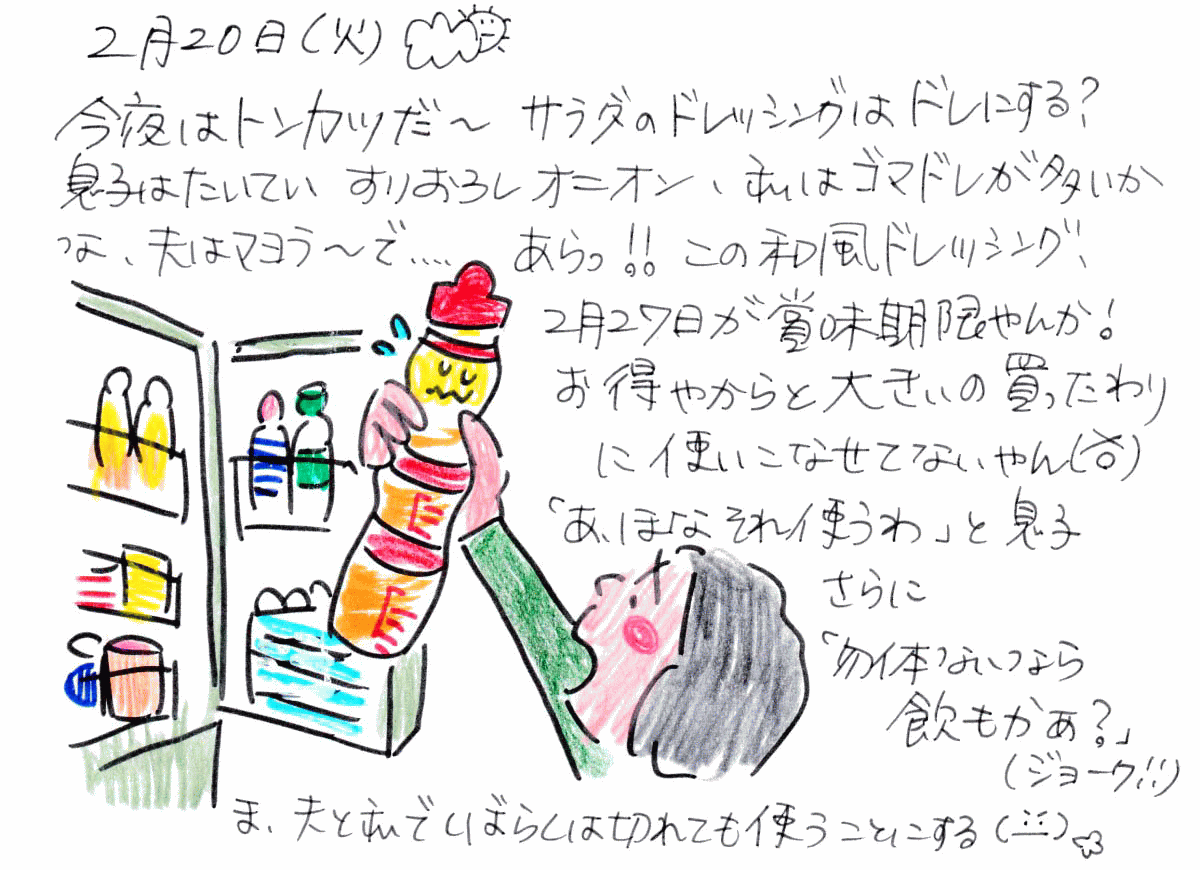 2月20日(火)
今夜はトンカツだ〜 サラダのドレッシングはドレにする?
息子はたいてい すりおろしオニオン、私はゴマドレが多いか
な、夫はマヨラ〜で.... あらっ!! この和風ドレッシング、
2月27日が賞味期限やんか!
お得やからと大きいの買ったわり
に使いこなせてないやん(笑)
「あ、ほなそれ使うわ」と息子
さらに
「勿体ないなら
飲もかぁ?」
(ジョーク!!)
ま、夫と私でしばらくは切れても使うことにする